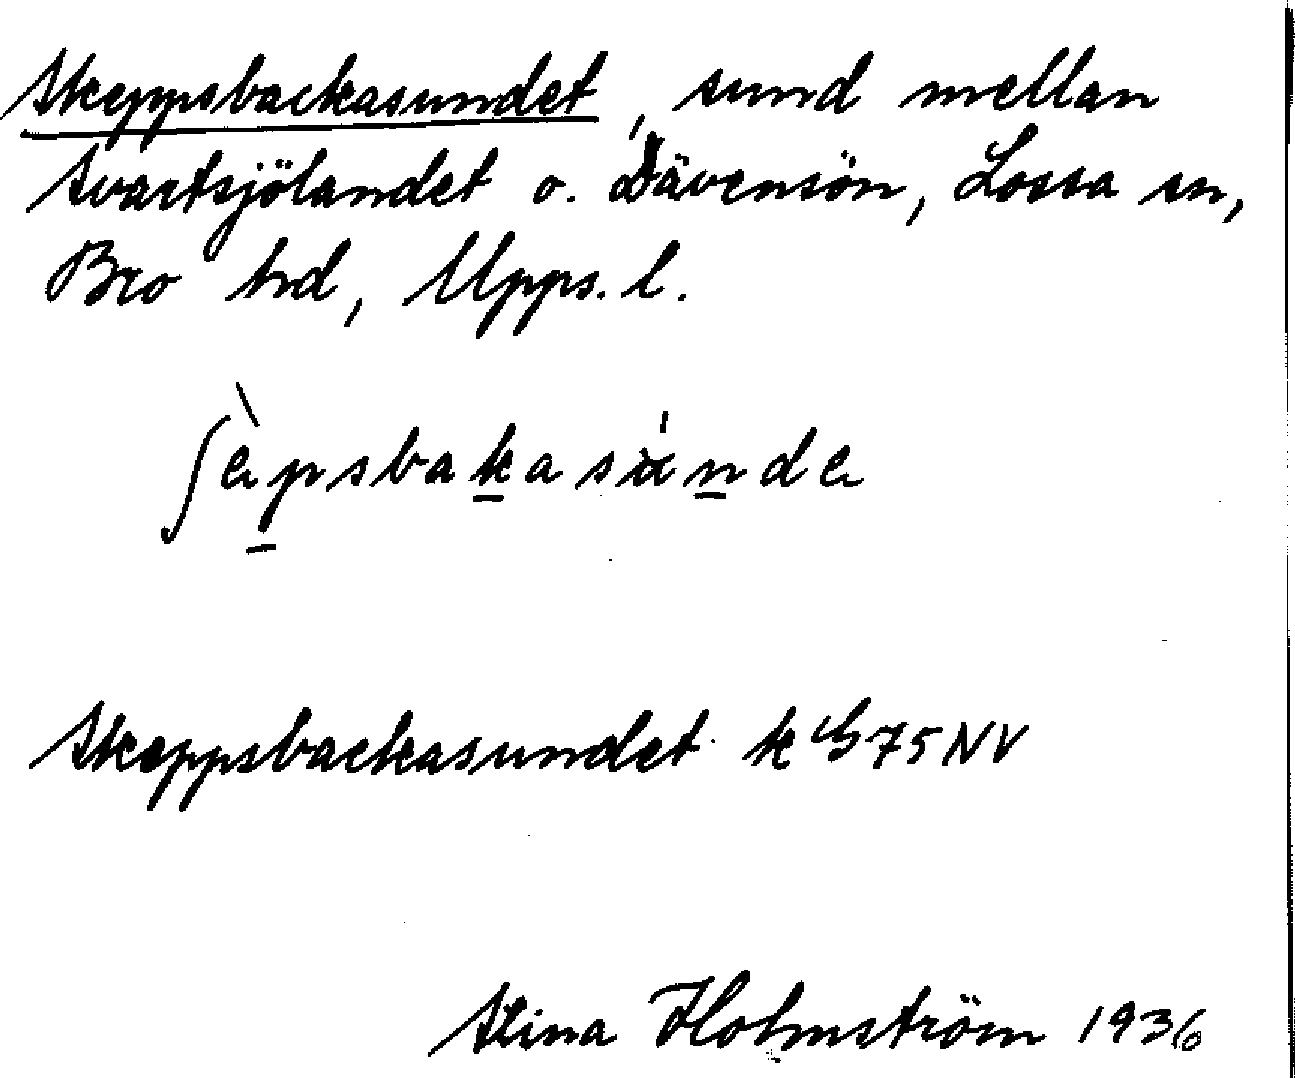 Skeppsbackasundet, sund mellan
Svartsjölandet o. Dävensön, Lossa sn,
Bro hd, Upps. l.
Skeppsbackasundet k G 75 NV
Stina Holmström 1936